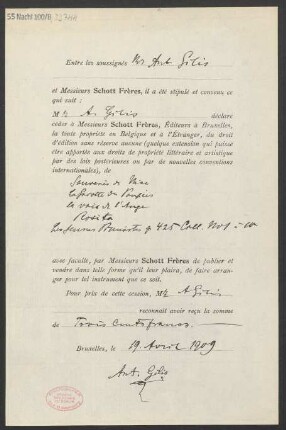 55 Nachl 100/B
Entre les soussignés Mr Ant. Gilis
et Messieurs Schott Frères, il a été stipulé et convenu ce
qui suit :
Mr A. Gilis déclare
céder à Messieurs Schott Frères, Éditeurs à Bruxelles,
la toute propriété en Belgique et à l'Étranger, du droit
d'édition sans réserve aucune (quelque extension qui puisse
être apportée aux droits de propriété littéraire et artistique
par des lois postérieures ou par de nouvelles conventions
internationales), de
Souvenir de
La
La voix de l'Ange
Rosita
Les jeunes 425 Coll. No 1 à 10
avec faculté, par Messieurs Schott Frères de publier et
vendre dans telle forme qu'il leur plaira, de faire arran-
ger pour tel instrument que ce soit.
Pour prix de cette cession, Mr A Gilis
reconnait avoir reçu la somme
de Trois Cents francs
Bruxelles, le 19 Avril 1909
Ant. Gilis